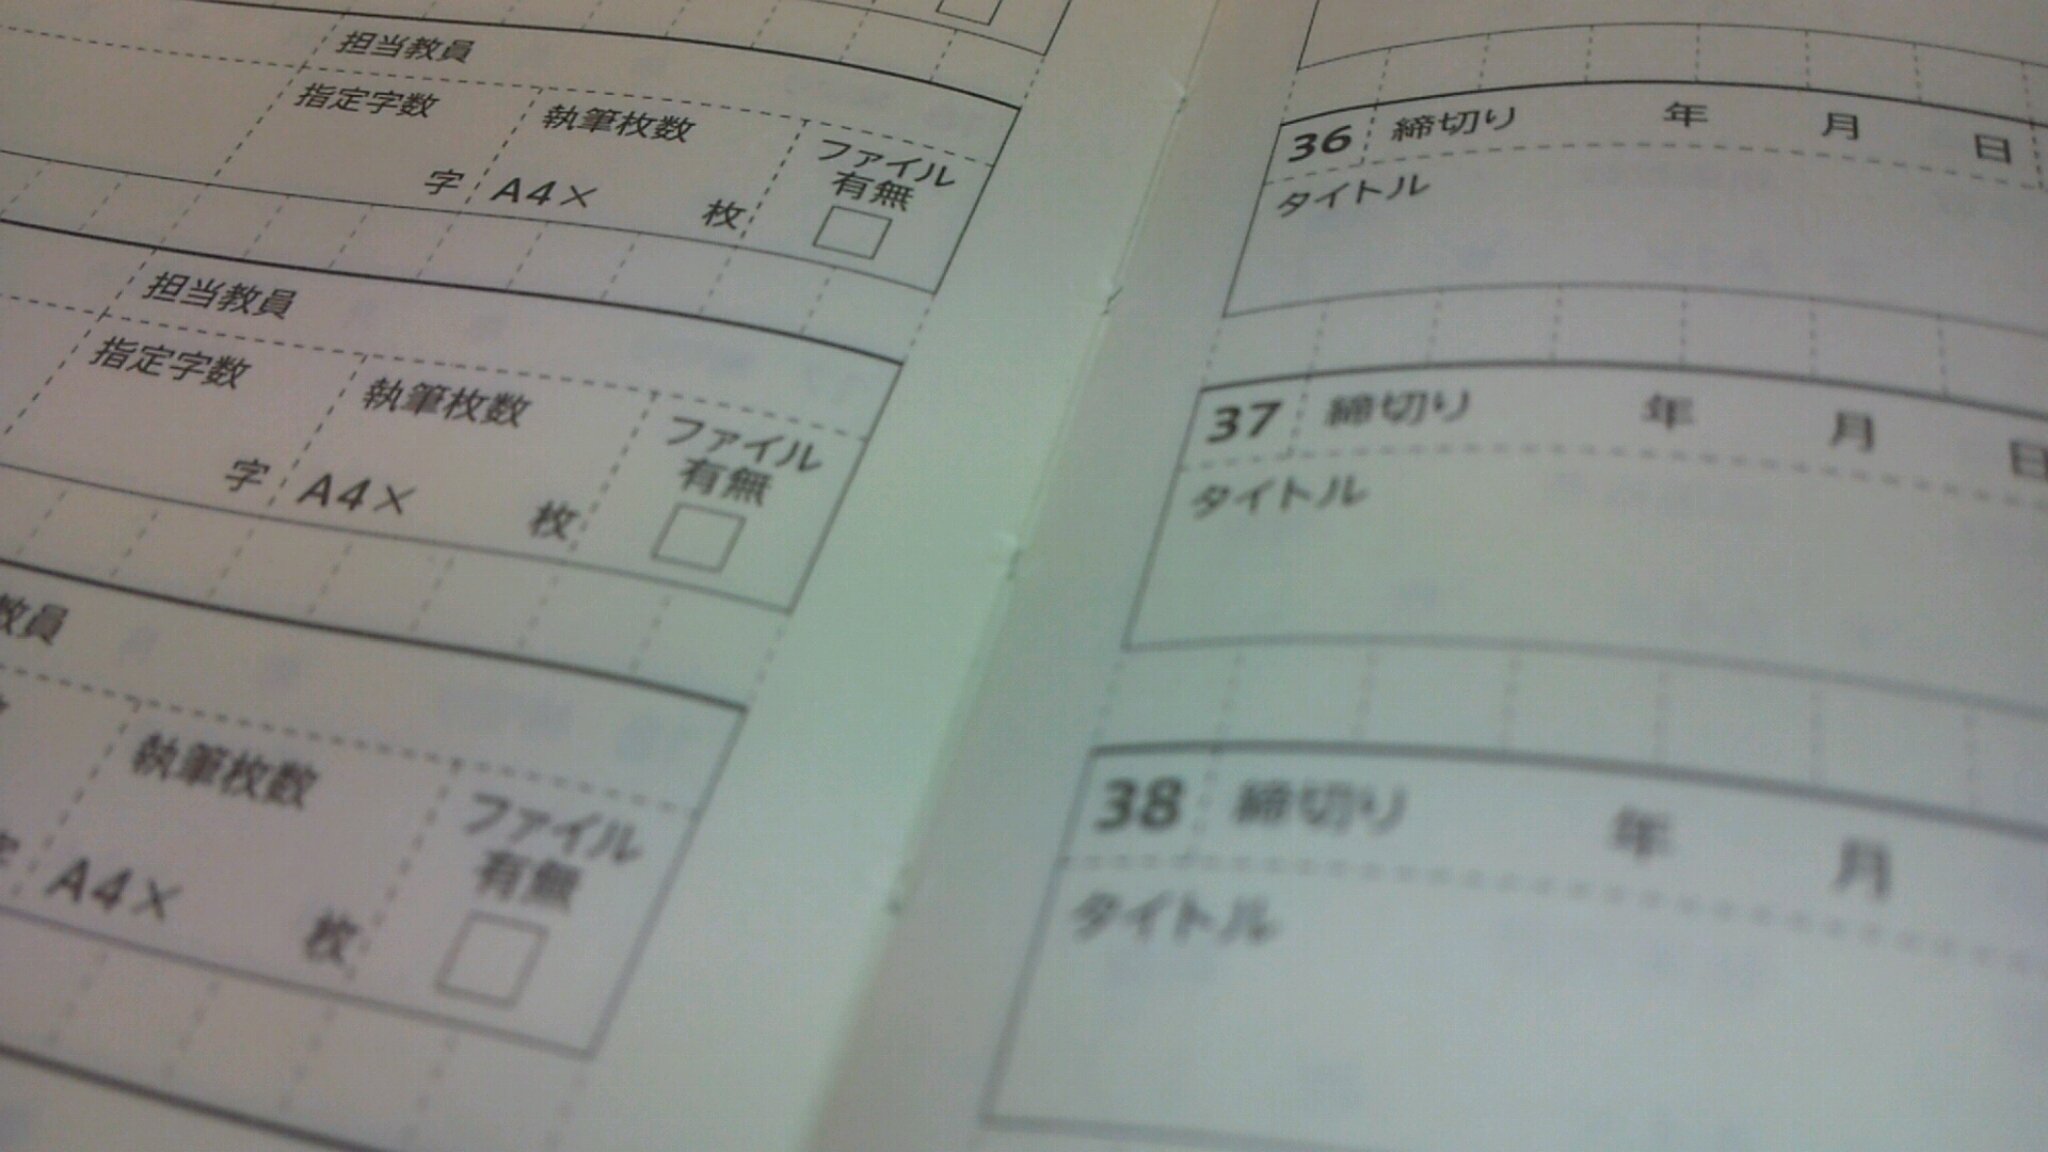 担当教員
指定字数 執筆枚数 ファイル
有無
字 A4× 枚
担当教員
指定字数 執筆枚数 ファイル
有無
字 A4× 枚
教員
執筆枚数 ファイル
有無
字 A4× 枚
36 締切り 年 月 日
タイトル
37 締切り 年 月 日
タイトル
38 締切り 年 月
タイトル